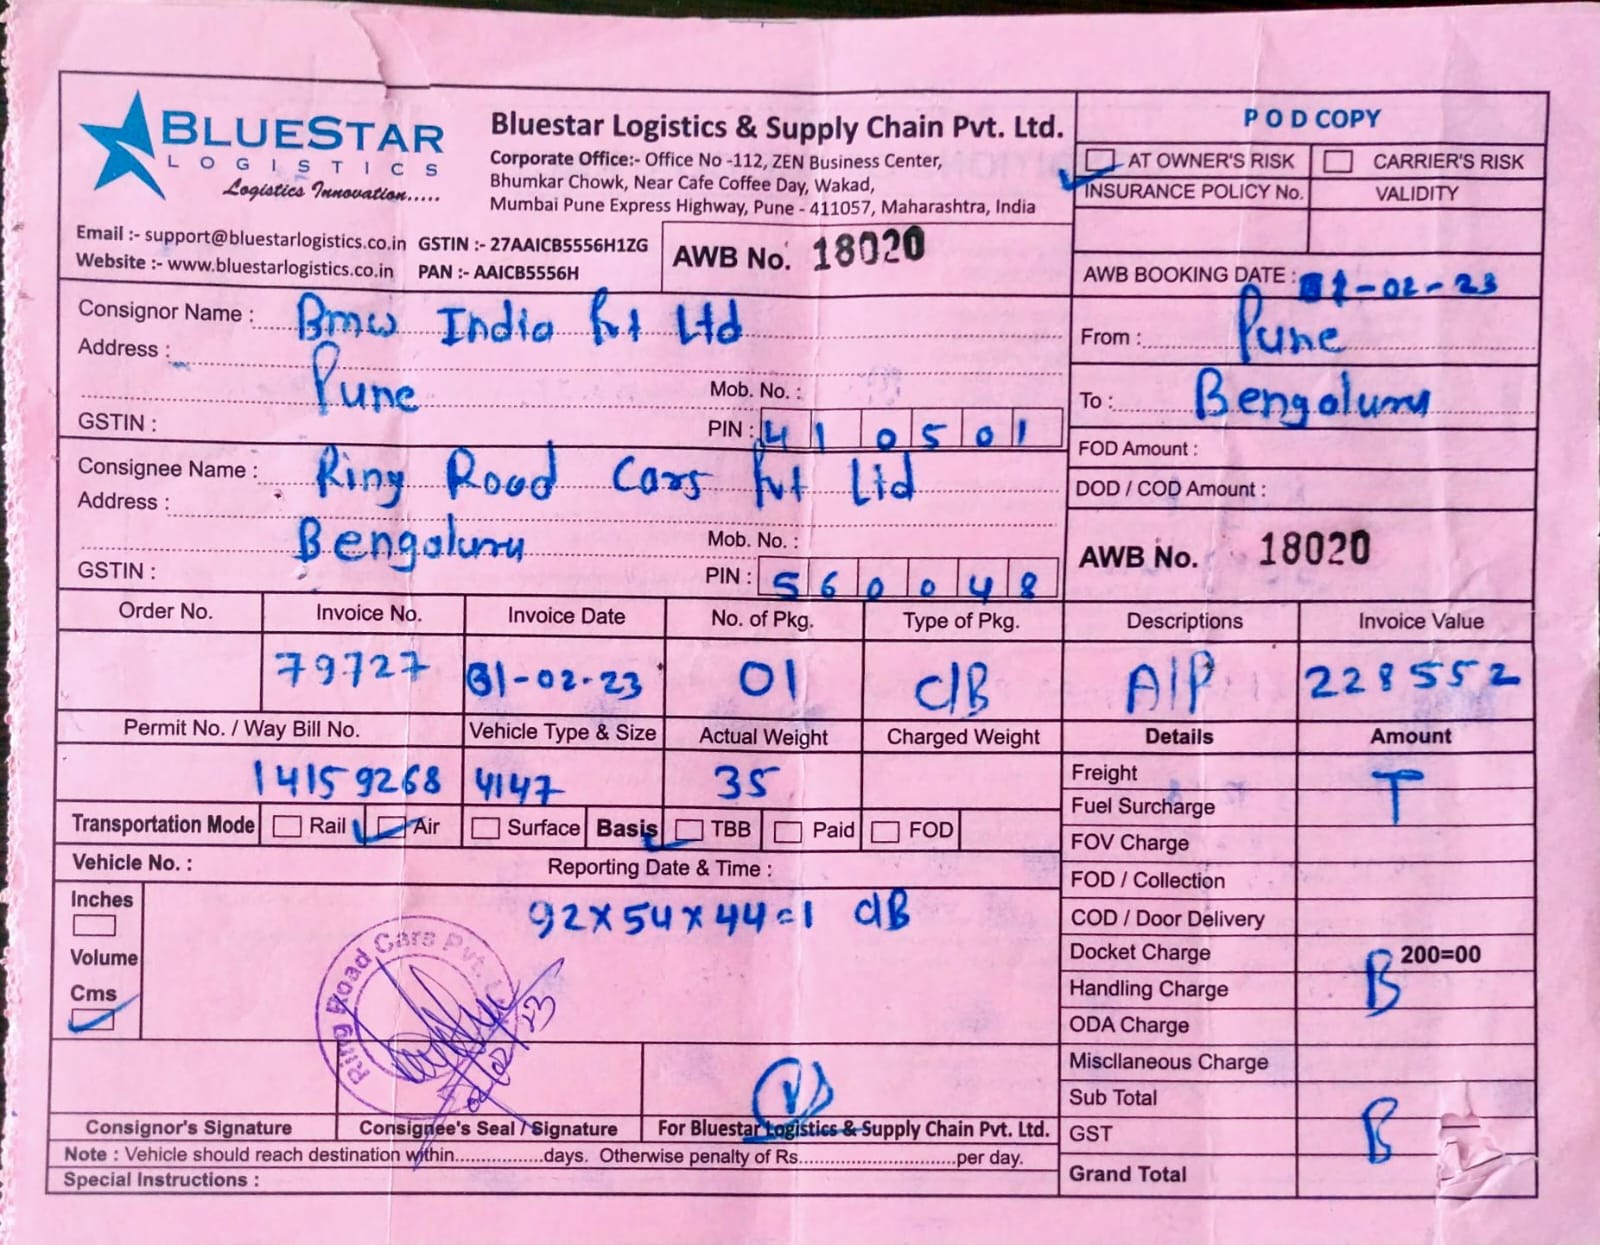 BLUESTAR
LOGISTICS
Logistics Innovation.....
Bluestar Logistics & Supply Chain Pvt. Ltd.
Corporate Office:- Office No -112, ZEN Business Center,
Bhumkar Chowk, Near Cafe Coffee Day, Wakad,
Mumbai Pune Express Highway, Pune - 411057, Maharashtra, India
Email :- support@bluestarlogistics.co.in GSTIN :- 27AAICB5556H1ZG
Website :- www.bluestarlogistics.co.in PAN :- AAICB5556H
AWB No. 18020
POD COPY
AT OWNER'S RISK CARRIER'S RISK
INSURANCE POLICY No. VALIDITY
AWB BOOKING DATE : 1-02-23
Consignor Name : Bmw India Pvt Ltd
Address :
Pune
Mob. No. :
GSTIN : PIN : 410501
From : Pune
To : Bengaluru
FOD Amount :
DOD / COD Amount :
AWB No. 18020
Consignee Name : Ring Road Cars Pvt Ltd
Address :
Bengaluru
Mob. No. :
GSTIN : PIN : 560048
Order No. Invoice No. Invoice Date No. of Pkg. Type of Pkg. Descriptions Invoice Value
79727 31-02-23 01 C/B A/P 228552
Permit No. / Way Bill No. Vehicle Type & Size Actual Weight Charged Weight Details Amount
14159268 4147 35
Transportation Mode Rail Air Surface Basis TBB Paid FOD
Vehicle No. : Reporting Date & Time :
Inches
Volume
Cms
92x54x44=1 C/B
Ring Road Cars Pvt.
02/02/23
Freight T
Fuel Surcharge
FOV Charge
FOD / Collection
COD / Door Delivery
Docket Charge 200=00
Handling Charge B
ODA Charge
Miscllaneous Charge
Sub Total
GST B
Grand Total
Consignor's Signature Consignee's Seal / Signature For Bluestar Logistics & Supply Chain Pvt. Ltd.
Note : Vehicle should reach destination within................days. Otherwise penalty of Rs............................per day.
Special Instructions :